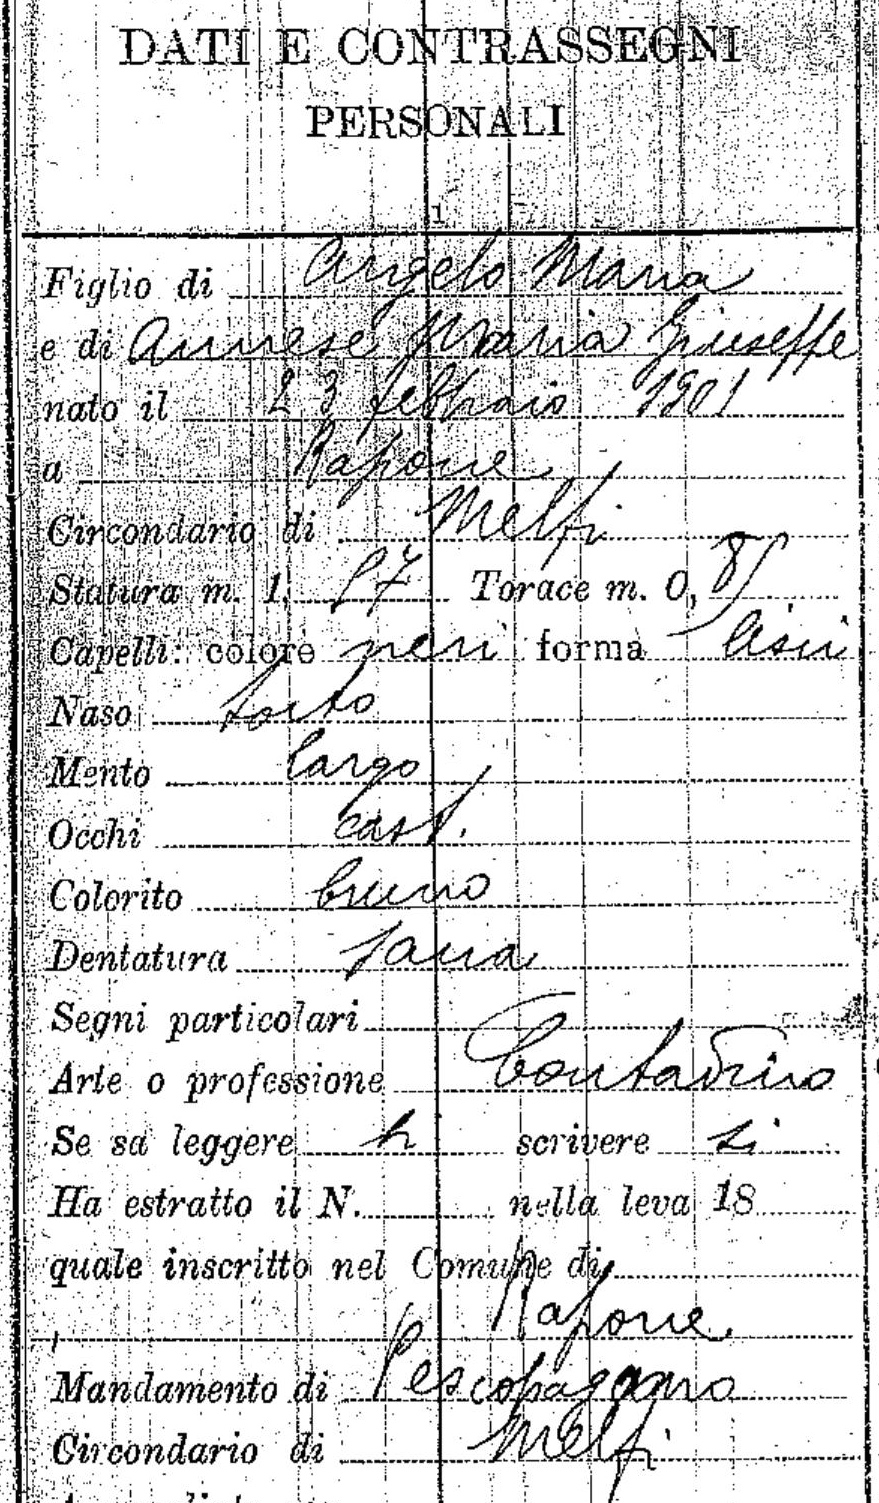 DATI E CONTRASSEGNI
PERSONALI
1
Figlio di Angelo Maria
e di Annese Maria Giuseppe
nato il 23 febbraio 1901
a Rapone
Circondario di Melfi
Statura m. 1, 57 Torace m. 0, 85
Capelli: colore neri forma lisci
Naso torto
Mento largo
Occhi cast.
Colorito bruno
Dentatura sana
Segni particolari
Arte o professione Contadino
Se sa leggere si scrivere si
Ha estratto il N. nella leva 18
quale inscritto nel Comune di
Rapone
Mandamento di Pescopagano
Circondario di Melfi